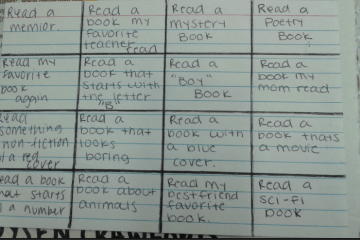 Read a
memior.
Read a
book my
favorite
teacher
read
Read a
mystery
Book
Read a
Poetry
Book
Read my
favorite
book
again
Read a
book that
starts with
the letter
"B"
Read a
"Boy"
Book
Read a
book my
mom read
Read
something
non-fiction
a red
cover
Read a
book that
looks
boring
Read a
book with
a blue
cover.
Read a
book thats
a movie
Read a book
that starts
a number
Read a
book about
animals
Read my
bestfriend
favorite
book.
Read a
sci-fi
book